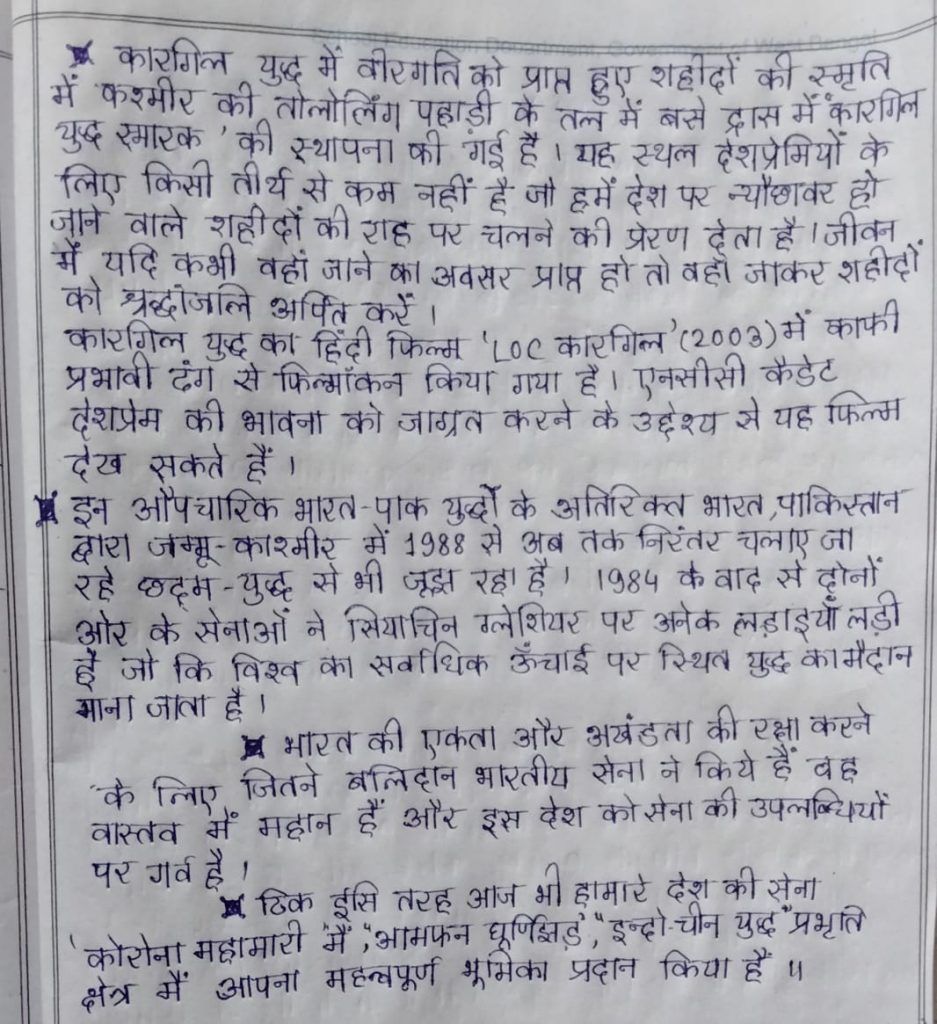 कारगिल युद्ध में वीरगति को प्राप्त हुए शहीदों की स्मृति
में कश्मीर की तोलोलिंग पहाड़ी के तल में बसे द्रास में 'कारगिल
युद्ध स्मारक' की स्थापना की गई है। यह स्थल देशप्रेमियों के
लिए किसी तीर्थ से कम नहीं है जो हमें देश पर न्यौछावर हो
जाने वाले शहीदों की राह पर चलने की प्रेरण देता है। जीवन
में यदि कभी वहां जाने का अवसर प्राप्त हो तो वहाँ जाकर शहीदों
को श्रद्धांजलि अर्पित करें।
कारगिल युद्ध का हिंदी फिल्म 'LOC कारगिल' (2003) में काफी
प्रभावी ढंग से फिल्मांकन किया गया है। एनसीसी कैडेट
देशप्रेम की भावना को जाग्रत करने के उद्देश्य से यह फिल्म
देख सकते हैं।
इन औपचारिक भारत-पाक युद्धों के अतिरिक्त भारत, पाकिस्तान
द्वारा जम्मू-काश्मीर में 1988 से अब तक निरंतर चलाए जा
रहे छद्म-युद्ध से भी जूझ रहा है। 1984 के बाद से दोनों
ओर के सेनाओं ने सियाचिन ग्लेशियर पर अनेक लड़ाइयाँ लड़ी
हैं जो कि विश्व का सर्वाधिक ऊँचाई पर स्थित युद्ध का मैदान
माना जाता है।
भारत की एकता और अखंडता की रक्षा करने
के लिए जितने बलिदान भारतीय सेना ने किये हैं वह
वास्तव में महान हैं और इस देश को सेना की उपलब्धियों
पर गर्व है।
ठिक ईसि तरह आज भी हामारे देश की सेना
'कोरोना महामारी' मैं, "आमफन घूर्णिझड़", "इन्दो-चीन युद्ध" प्रभृति
क्षेत्र मैं आपना महत्वपूर्ण भूमिका प्रदान किया हैं॥